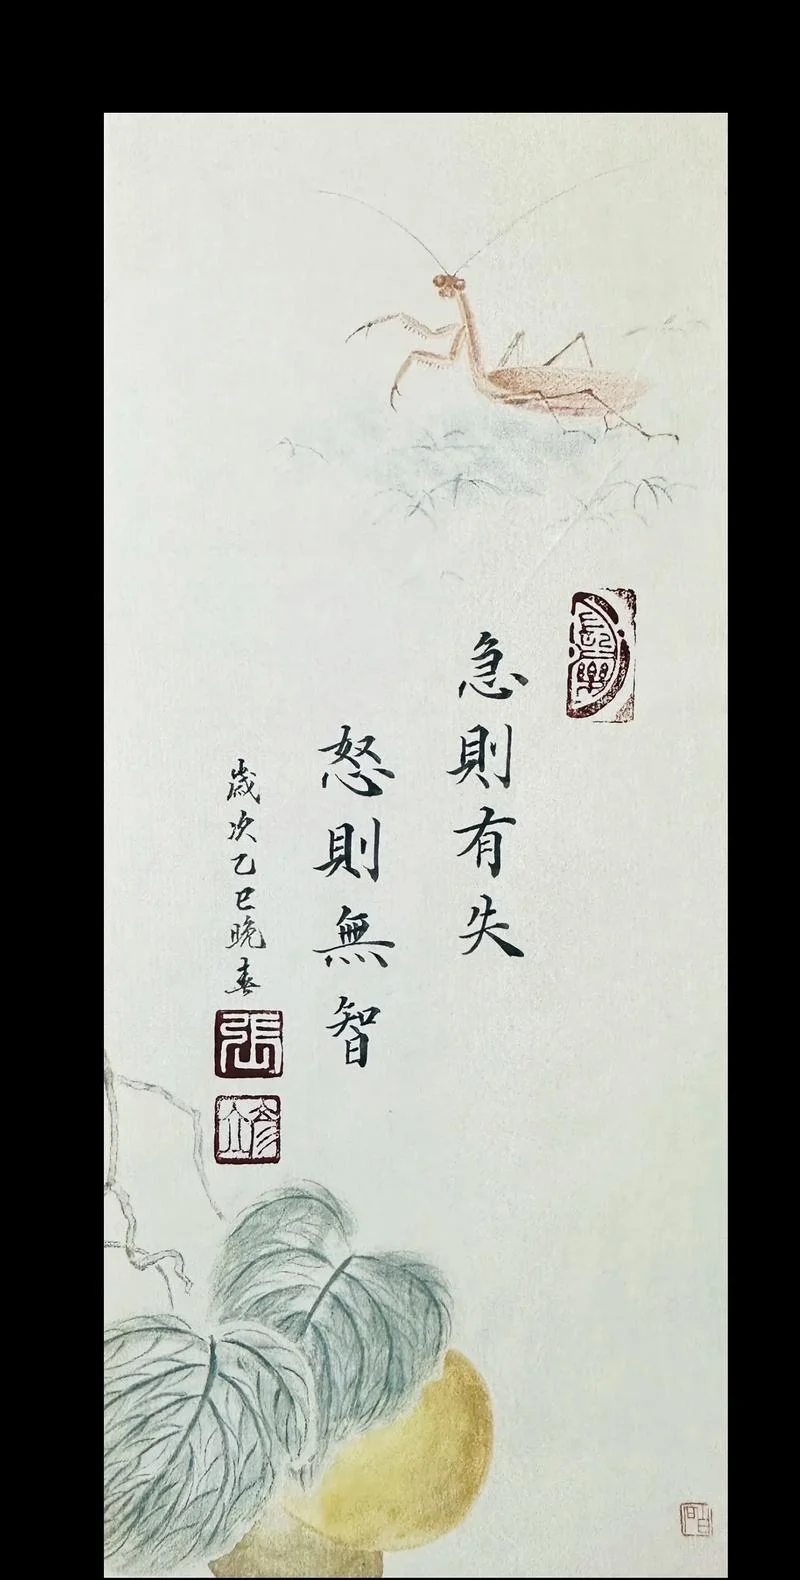 急則有失
怒則無智
歲次乙巳晚春
張